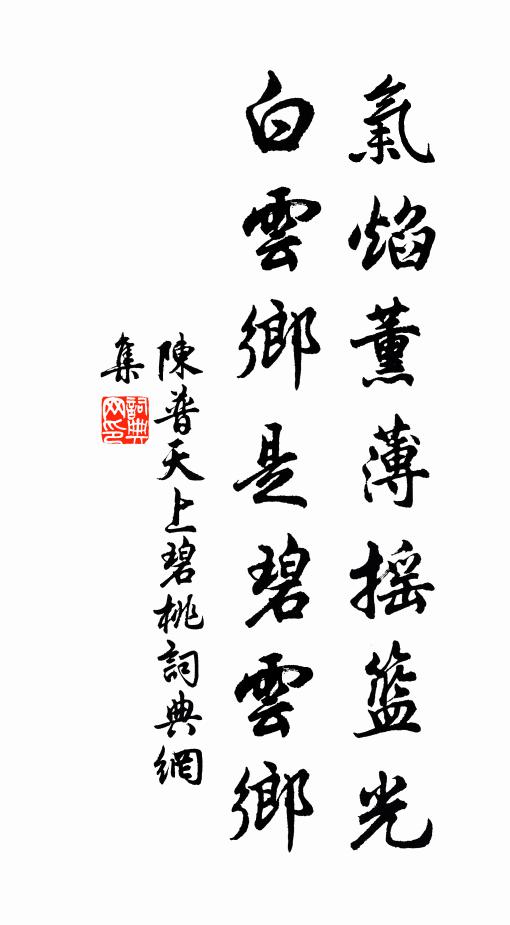 氣焰薰薄摇籃光
白雲鄉是碧雲鄉
陳普天上碧桃詞典網
集
詞典網印